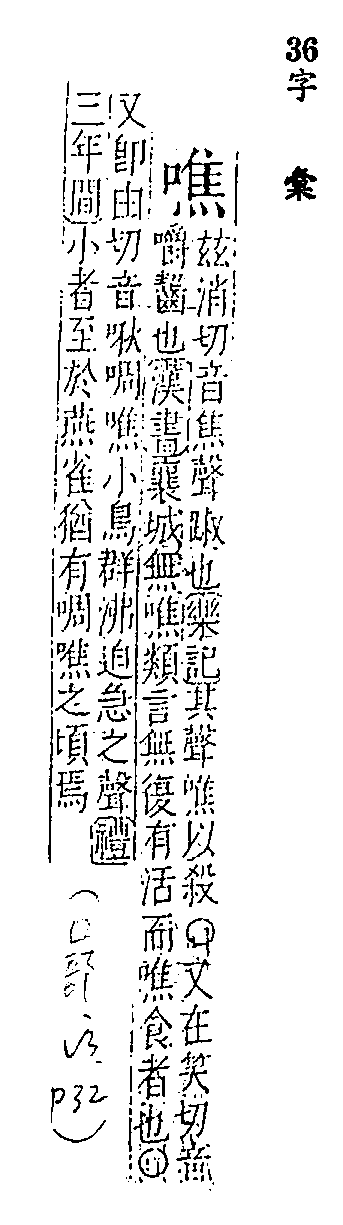 36字彙
噍
茲消切音焦聲踧也樂記其聲噍以殺○又在笑切音
嚼齧也漢書襄城無噍類言無復有活而噍食者也○
又即由切音啾啁噍小鳥群沸迫急之聲禮
三年間小者至於燕雀猶有啁噍之頃焉
(口部 p32)